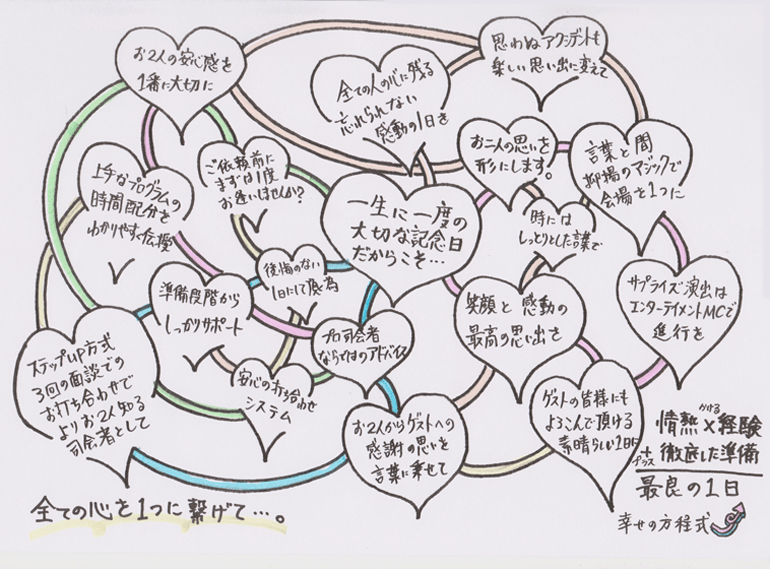 お2人の安心感を
1番に大切に
全ての人の心に残る
忘れられない
感動の1日を
思わぬアクシデントも
楽しい思い出に変えて
上手なプログラムの
時間配分を
わかりやすく伝授
ご依頼前に
まずは1度
お逢いしませんか?
お二人の思いを
形にします。
言葉と間
抑揚のマジックで
会場を1つに
一生に一度の
大切な記念日
だからこそ…
時には
しっとりとした言葉で
後悔のない
1日にして頂く為
準備段階から
しっかりサポート
笑顔と感動の
最高の思い出を
サプライズ演出は
エンターテイメントMCで
進行を
プロ司会者
ならではのアドバイス
ステップUP方式
3回の面談での
お打ち合わせで
よりお2人知る
司会者として
安心の打ち合わせ
システム
お2人からゲストへの
感謝の思いを
言葉に乗せて
ゲストの皆様にも
よろこんで頂ける
素晴らしい1日に
情熱×かける経験
+プラス徹底した準備
最良の1日
幸せの方程式
全ての心を1つに繋げて…。